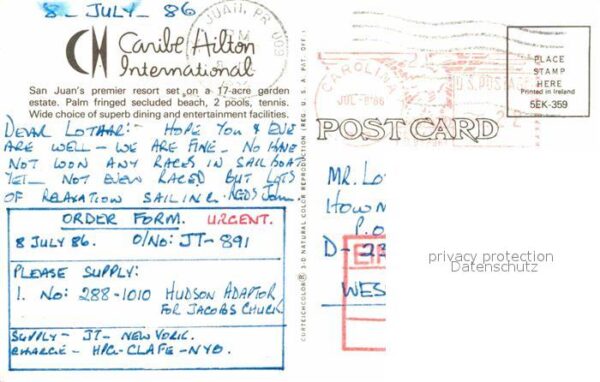 8 - JULY - 86
JUAN, PR 009
PM
CH Caribe Hilton
International
San Juan's premier resort set on a 17-acre garden
estate. Palm fringed secluded beach, 2 pools, tennis.
Wide choice of superb dining and entertainment facilities.
DEAR LOTHAR:- HOPE YOU & EVE
ARE WELL - WE ARE FINE - NO HAVE
NOT WON ANY RACES IN SAILBOAT
YET - NOT EVEN RACED BUT LOTS
OF RELAXATION SAILING. RGDS John.
ORDER FORM. URGENT.
8 JULY 86. O/No: JT-891
PLEASE SUPPLY:
1. No: 288-1010 HUDSON ADAPTOR
FOR JACOBS CHUCK
SUPPLY - JT - NEW YORK.
CHARGE - HPG-CLAFE-NYO.
CURTEICHCOLOR® 3-D NATURAL COLOR REPRODUCTION (REG. U.S.A. PAT. OFF.)
CAROLINA
JUL-8'86
U.S. POSTAGE
PLACE
STAMP
HERE
Printed in Ireland
5EK-359
POST CARD
MR. LO
HOWN
P.O
D - 23
WES
privacy protection
Datenschutz